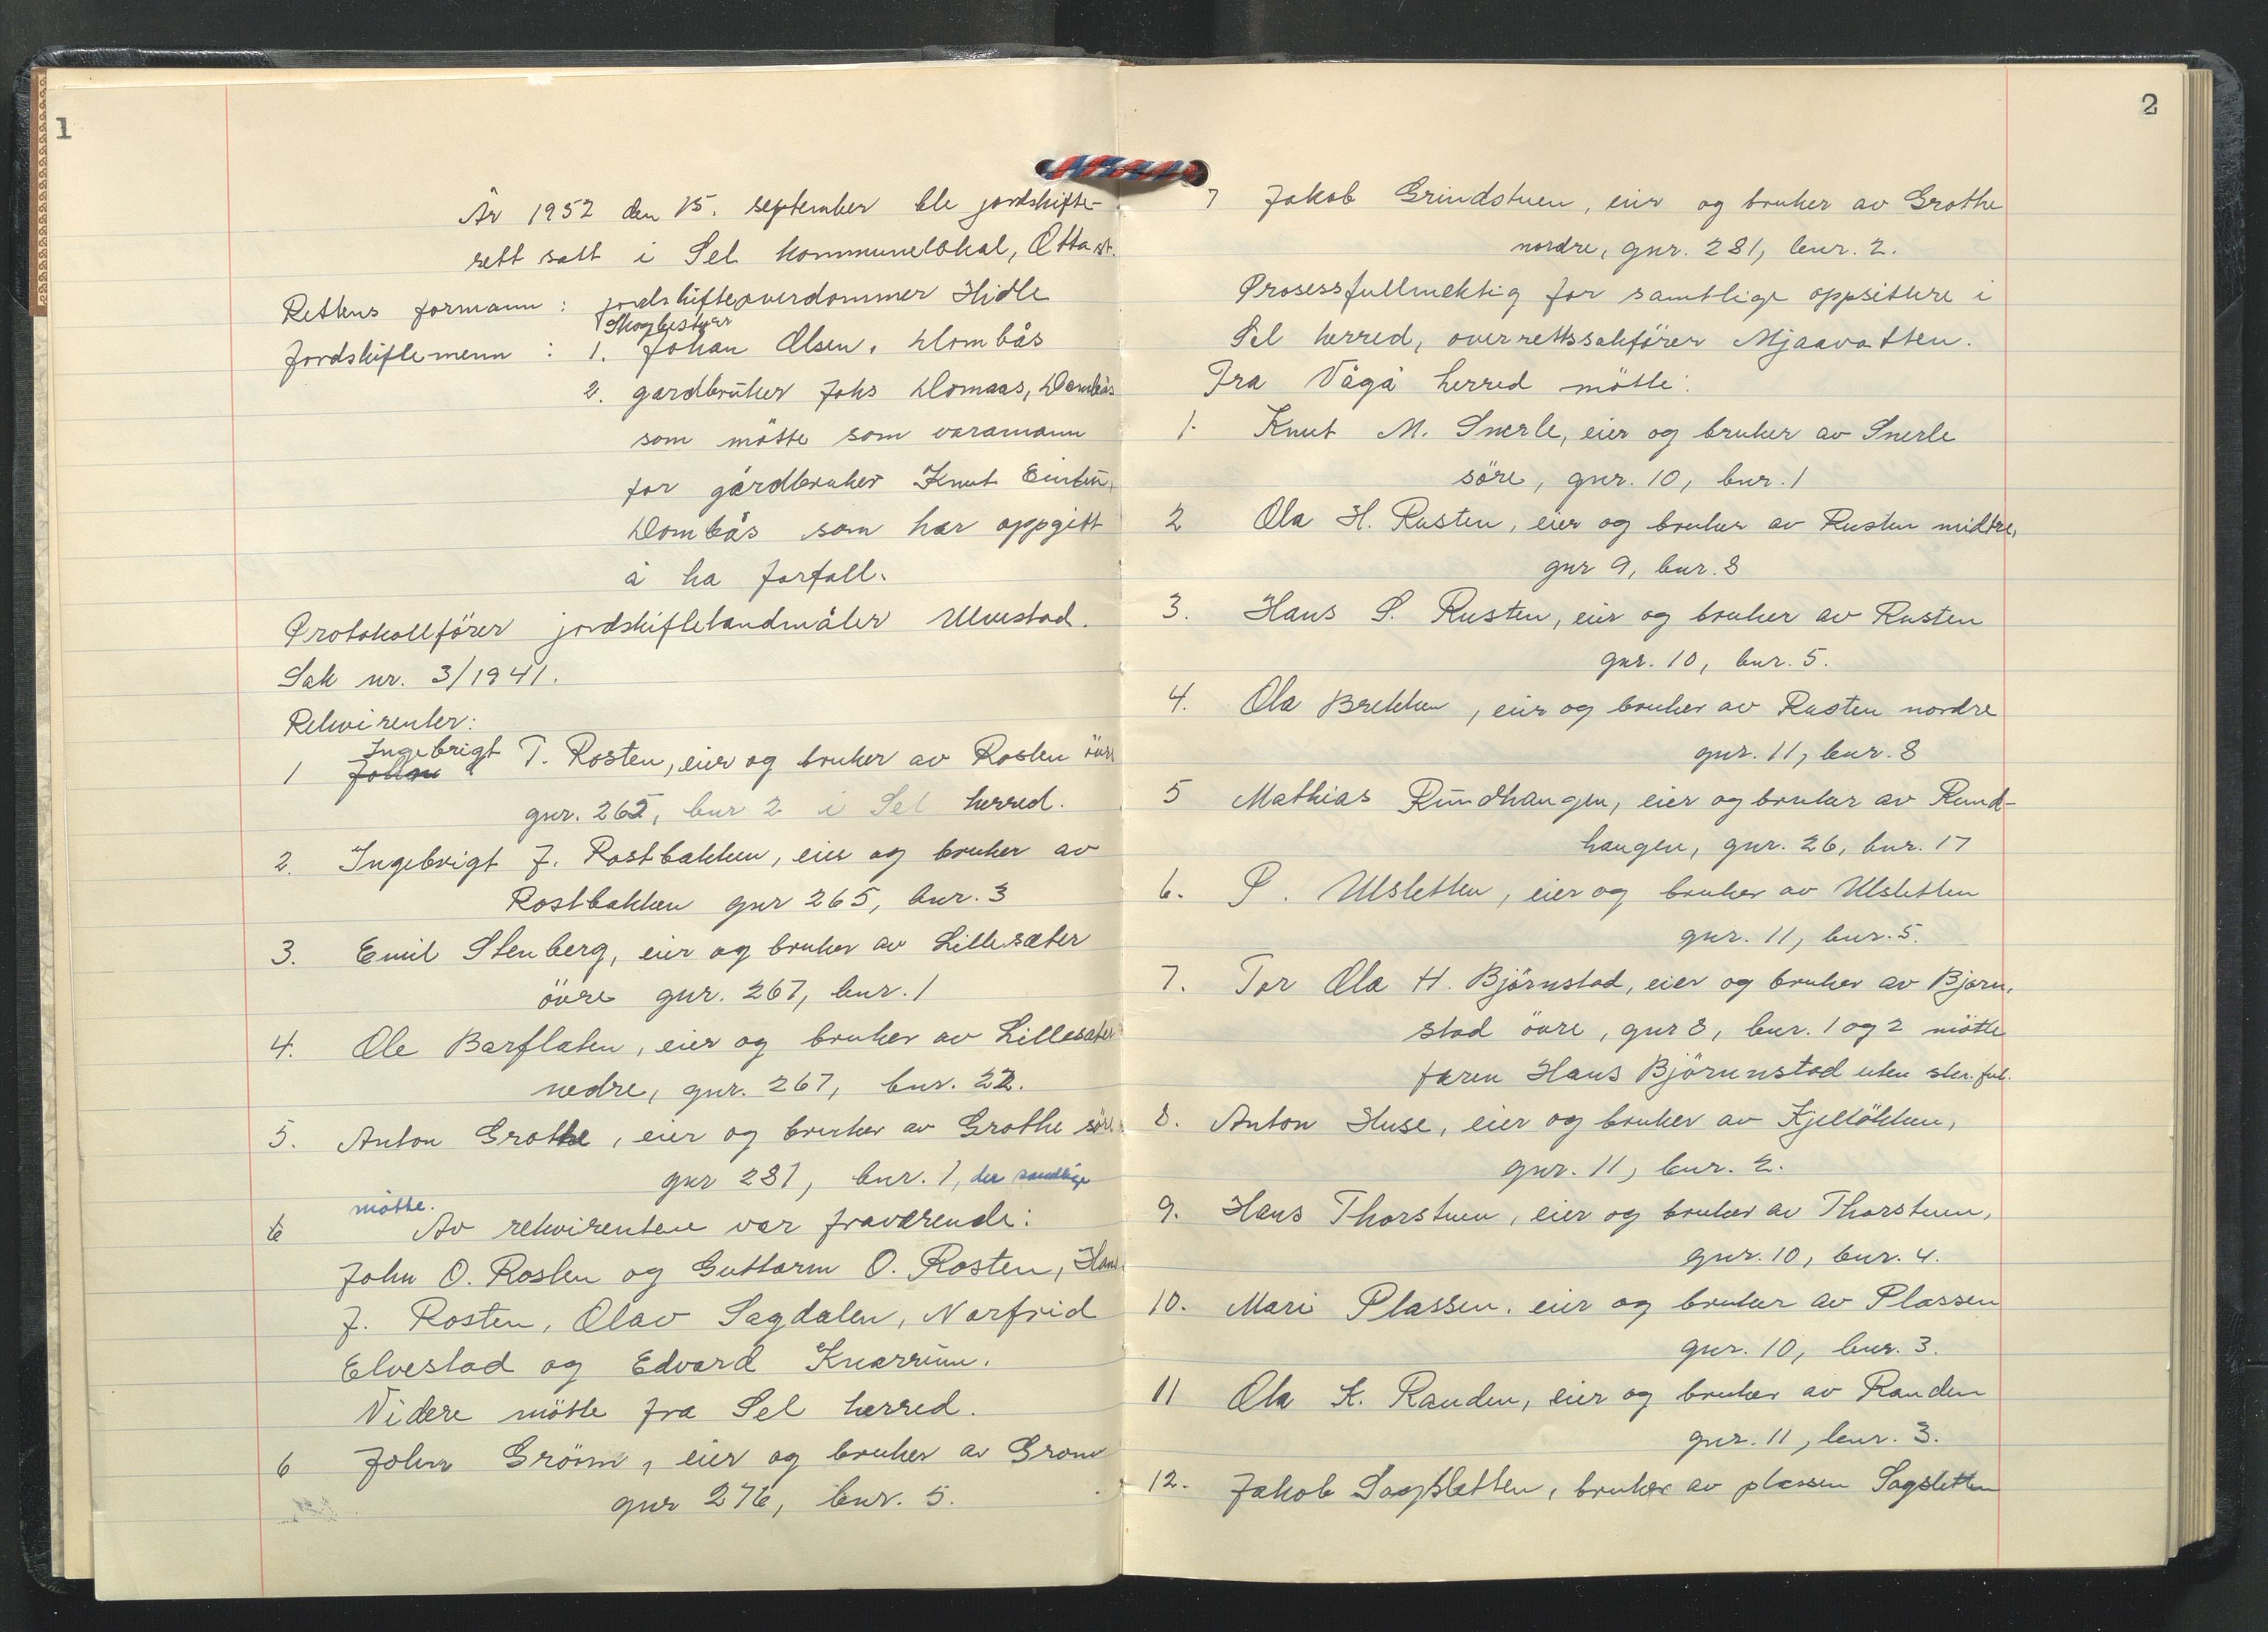 1
År 1952 den 15. september ble jordskifte-
rett satt i Sel kommunelokal, Otta st.
Rettens formann: jordskifteoverdommer Hidle
Skogbestyrer
Jordskiftemenn: 1. Johan Olsen, Dombås
2. gardbruker Johs Domaas, Dombås
som møtte som varamann
for gårdbruker Knut Einbu,
Dombås som har oppgitt
å ha forfall.
Protokollfører jordskiftelandmåler Ulvestad.
Sak nr. 3/1941.
Rekvirenter:
Ingebrigt
1 Johan T. Rosten, eier og bruker av Rosten övre
gnr. 265, bnr 2 i Sel herred.
2. Ingebrigt J. Rostbakken, eier og bruker av
Rostbakken gnr 265, bnr. 3
3. Emil Stenberg, eier og bruker av Lillesæter
övre gnr. 267, bnr. 1
4. Ole Barflaten, eier og bruker av Lillesæter
nedre, gnr. 267, bnr. 22.
5. Anton Grothe, eier og bruker av Grothe söre
gnr 281, bnr. 1, der samtlige
møtte.
6 Av rekvirentene var fraværende:
John O. Rosten og Guttorm O. Rosten, Hans
J. Rosten, Olav Sagdalen, Narfrid
Elvestad og Edvard Knarrum.
Videre mötte fra Sel herred.
6 John Gröm, eier og bruker av Grom
gnr 276, bnr. 5.
2
7 Jakob Grindstuen, eier og bruker av Grothe
nordre, gnr. 281, bnr. 2.
Prosessfullmektig for samtlige oppsittere i
Sel herred, overrettssakförer Mjaavatten.
Fra Vågå herred mötte:
1. Knut M. Snerle, eier og bruker av Snerle
söre, gnr. 10, bnr. 1
2 Ola H. Rusten, eier og bruker av Rusten midtre,
gnr 9, bnr. 8
3. Hans S. Rusten, eier og bruker av Rusten
gnr. 10, bnr. 5.
4. Ola Brekken, eier og bruker av Rusten nordre
gnr. 11, bnr. 8
5 Mathias Rundhaugen, eier og bruker av Rund-
haugen, gnr. 26, bnr. 17
6. P. Ulsletten, eier og bruker av Ulsletten
gnr. 11, bnr. 5.
7. For Ola H. Björnstad, eier og bruker av Bjørn-
stad övre, gnr 8, bnr. 1 og 2 mötte
faren Hans Björnnstad uten skr. ful.
8. Anton Huse, eier og bruker av Kjellökken,
gnr. 11, bnr. 2.
9. Hans Thorstuen, eier og bruker av Thorstuen,
gnr. 10, bnr. 4.
10. Mari Plassen, eier og bruker av Plassen
gnr. 10, bnr. 3.
11 Ola K. Randen, eier og bruker av Randen
gnr. 11, bnr. 3.
12. Jakob Sagsletten, bruker av plassen Sagsletten